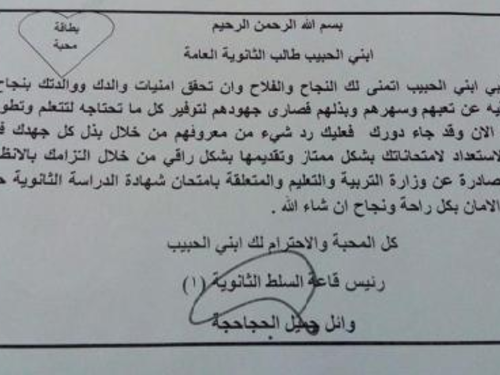 بطاقة
محبة
بسم الله الرحمن الرحيم
ابني الحبيب طالب الثانوية العامة
ابني الحبيب اتمنى لك النجاح والفلاح وان تحقق امنيات والدك ووالدتك بنجاح
عن تعبهم وسهرهم وبذلهم قصارى جهودهم لتوفير كل ما تحتاجه لتتعلم وتطو
الان وقد جاء دورك فعليك رد شيء من معروفهم من خلال بذل كل جهدك ف
لاستعداد لامتحاناتك بشكل ممتاز وتقديمها بشكل راقي من خلال التزامك بالانظ
صادرة عن وزارة التربية والتعليم والمتعلقة بامتحان شهادة الدراسة الثانوية
الامان بكل راحة ونجاح ان شاء الله .
كل المحبة والاحترام لك ابني الحبيب
رئيس قاعة السلط الثانوية (١)
وائل جميل الحجاحجة